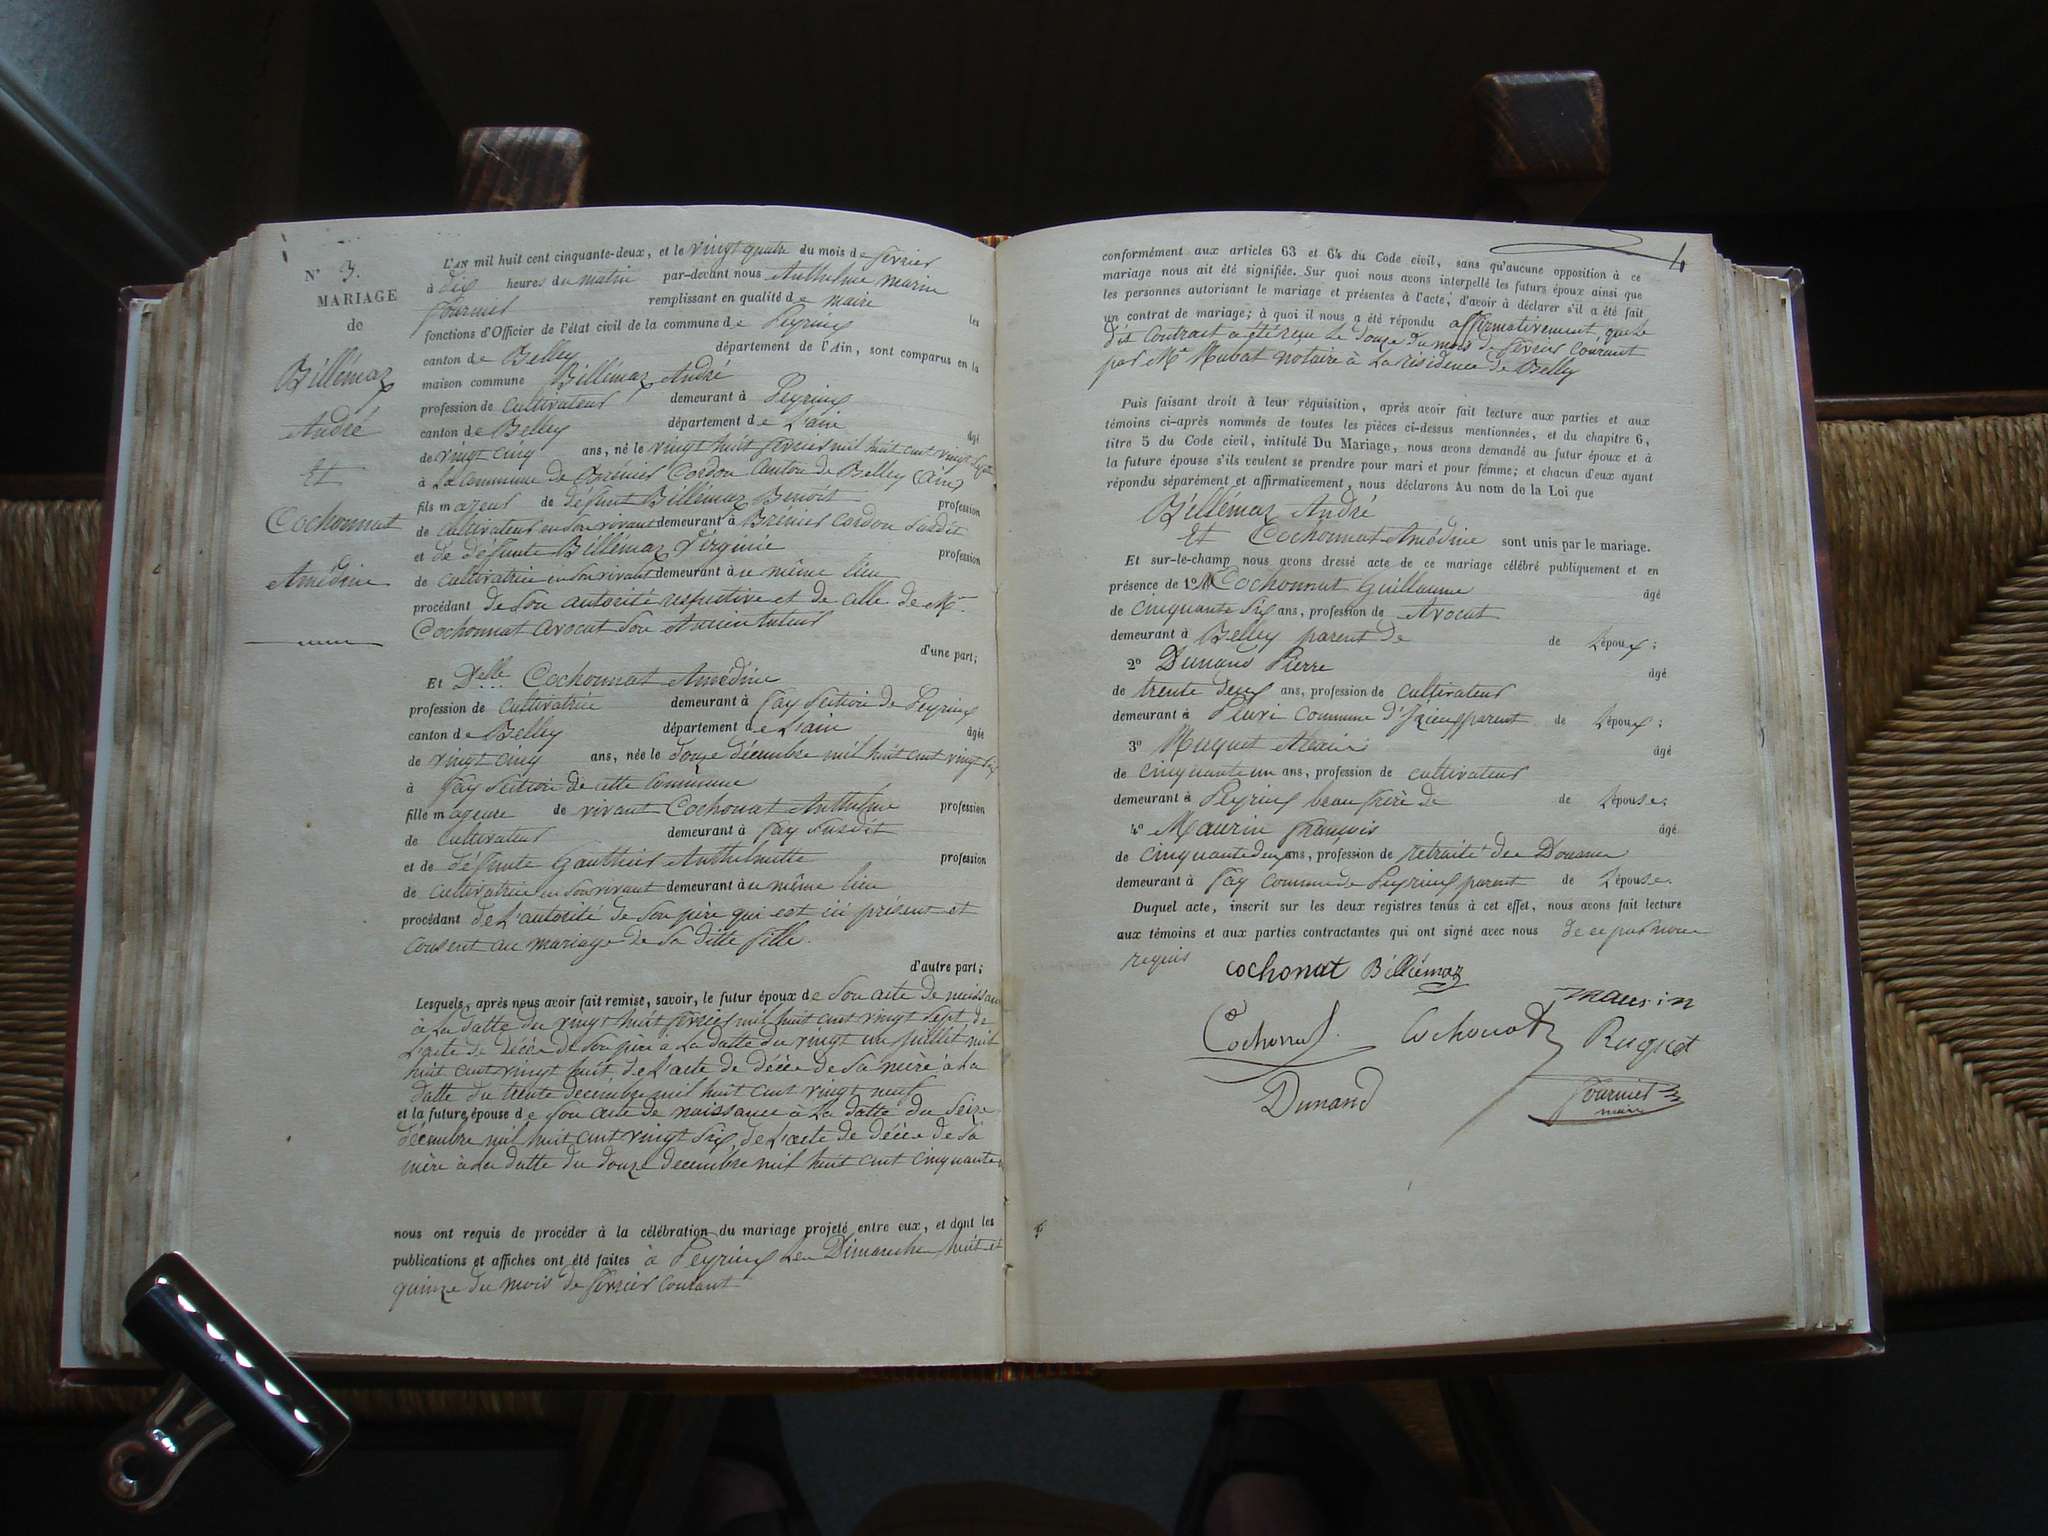 N° 3.
MARIAGE
de
Billémaz
André
Et
Cochonnat
Amédine
L'AN mil huit cent cinquante-deux, et le vingt quatre du mois de février
à dix heures du matin par-devant nous Anthelme marin
fournier remplissant en qualité de maire les
fonctions d'Officier de l'état civil de la commune de Peyrieux
canton de Belley département de l'Ain, sont comparus en la
maison commune Billémaz André
profession de cultivateur demeurant à Peyrieux
canton de Belley département de L'ain âgé
de vingt cinq ans, né le vingt huit février mil huit cent vingt sept
à La Commune de Brénier Cordon canton de Belley (ain)
fils majeur de défunt Billémaz Benoit profession
de cultivateur en son vivant demeurant à Brénier cordon susdit
et de défunte Billémaz Virginie profession
de cultivatrice en son vivant demeurant au même lieu
procédant de son autorité respective et de celle de Mr
Cochonnat avocat son Ancien tuteur
d'une part;
Et Delle Cochonnat Amédine
profession de cultivatrice demeurant à fay section de Peyrieux
canton de Belley département de L'ain âgée
de vingt cinq ans, née le douze décembre mil huit cent vingt six
à fay section de cette commune
fille majeure de vivant Cochonat Anthelme profession
de cultivateur demeurant à fay susdit
et de défunte Gauthier Anthelmette profession
de cultivatrice en son vivant demeurant au même lieu
procédant de L'autorité de son père qui est ici présent et
consent au mariage de sa ditte fille.
d'autre part;
Lesquels, après nous avoir fait remise, savoir, le futur époux de son acte de naissance
à La datte du vingt huit février mil huit cent vingt sept de
L'acte de décès de son père à La datte du vingt un juillet mil
huit cent vingt huit de L'acte de décès de sa mère à La
datte du trente décembre mil huit cent vingt neuf
et la future épouse de son acte de naissance à La datte du seize
décembre mil huit cent vingt six, de L'acte de décès de sa
mère à La datte du douze decembre mil huit cent cinquante
nous ont requis de procéder à la célébration du mariage projeté entre eux, et dont les
publications et affiches ont été faites à Peyrieux Les Dimanches huit et
quinze du mois de février courant
4
conformément aux articles 63 et 64 du Code civil, sans qu'aucune opposition à ce
mariage nous ait été signifiée. Sur quoi nous avons interpellé les futurs époux ainsi que
les personnes autorisant le mariage et présentes à l'acte, d'avoir à déclarer s'il a été fait
un contrat de mariage; à quoi il nous a été répondu affirmativement que le
dit Contrat a été reçu Le douze du mois de février courant
par Me Rubat notaire à La résidence de Belley
Puis faisant droit à leur réquisition, après avoir fait lecture aux parties et aux
témoins ci-après nommés de toutes les pièces ci-dessus mentionnées, et du chapitre 6,
titre 5 du Code civil, intitulé Du Mariage, nous avons demandé au futur époux et à
la future épouse s'ils veulent se prendre pour mari et pour fémme; et chacun d'eux ayant
répondu séparément et affirmativement, nous déclarons Au nom de la Loi que
Billémaz André
Et Cochonnat Amédine sont unis par le mariage.
Et sur-le-champ nous avons dressé acte de ce mariage célébré publiquement et en
présence de 1° Mr Cochonnat Guillaume âgé
de cinquante six ans, profession de Avocat
demeurant à Belley parent de de L'époux;
2° Dunand Pierre âgé
de trente deux ans, profession de cultivateur
demeurant à commune d'Izieux parent de L'époux;
3° Ruquet Alexis âgé
de cinquante un ans, profession de cultivateur
demeurant à Peyrieux beau frère de de L'épouse.
4° Maurin françois âgé
de cinquante deux ans, profession de retraité des Douanes
demeurant à fay commune de Peyrieux parent de L'épouse.
Duquel acte, inscrit sur les deux registres tenus à cet effet, nous avons fait lecture
aux témoins et aux parties contractantes qui ont signé avec nous de ce par nous
requis
cochonat Billiémaz
maurin
Cochonnat Cochonat Ruquet
Dunand fournier
maire